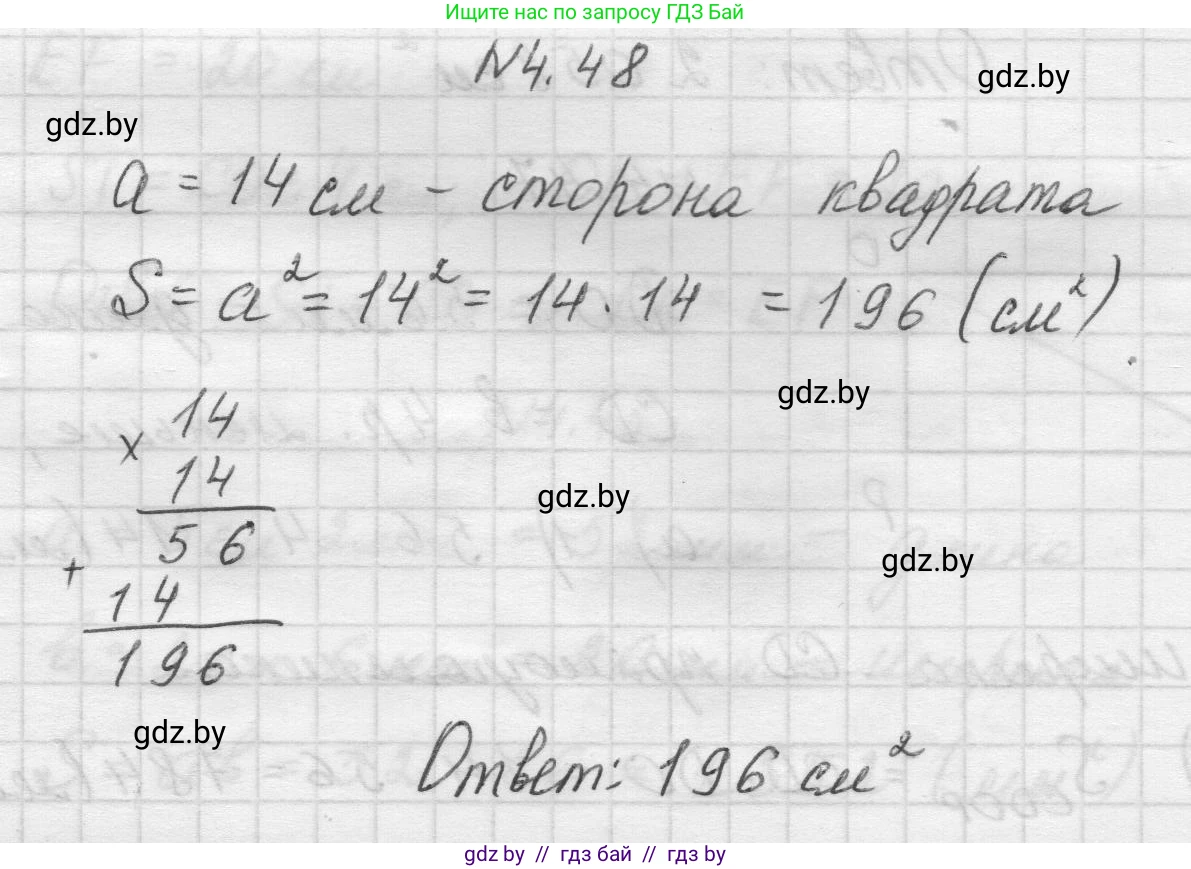 Ищите нас по запросу ГДЗ Бай
№4.48
gdz.by
gdz.by
a = 14 см - сторона квадрата
S = a² = 14² = 14 · 14 = 196 (см²)
gdz.by
× 14
14
gdz.by
56
gdz.by
+ 14
196
gdz.by
Ответ: 196 см²
gdz by // гдз бай // гдз by